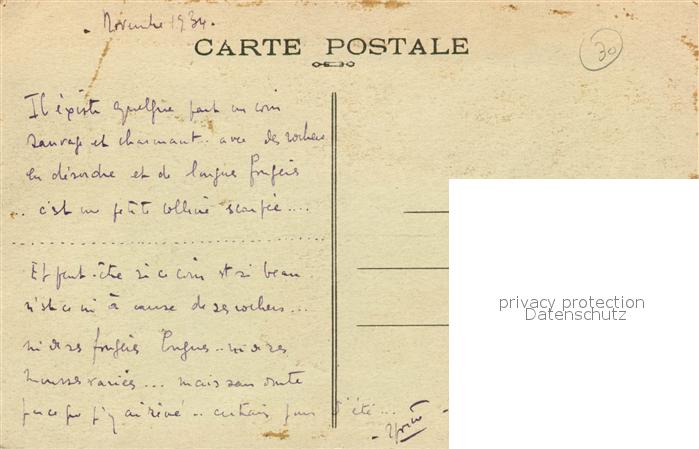 . Novembre 1934.
CARTE POSTALE
30
Il existe quelque part un coin
sauvage et charmant.. avec des rochers
en désordre et de longues fougères
.. c'est une petite colline ....
Et peut-être si ce coin est si beau
n'est ce ni à cause de ses rochers...
ni de ses fougères longues.. ni de ses
mousses variées... mais sans doute
parce que j'y ai rêvé.. certains jours d'été...
privacy protection
Datenschutz